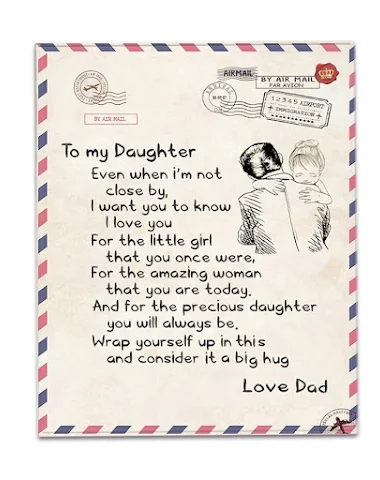 AIRMAIL
BY AIR MAIL
PAR AVION
12345 AIRPORT
IMMIGRATION
BY AIR MAIL
To my Daughter
Even when i'm not
close by,
I want you to know
I love you
For the little girl
that you once were,
For the amazing woman
that you are today.
And for the precious daughter
you will always be.
Wrap yourself up in this
and consider it a big hug
Love Dad